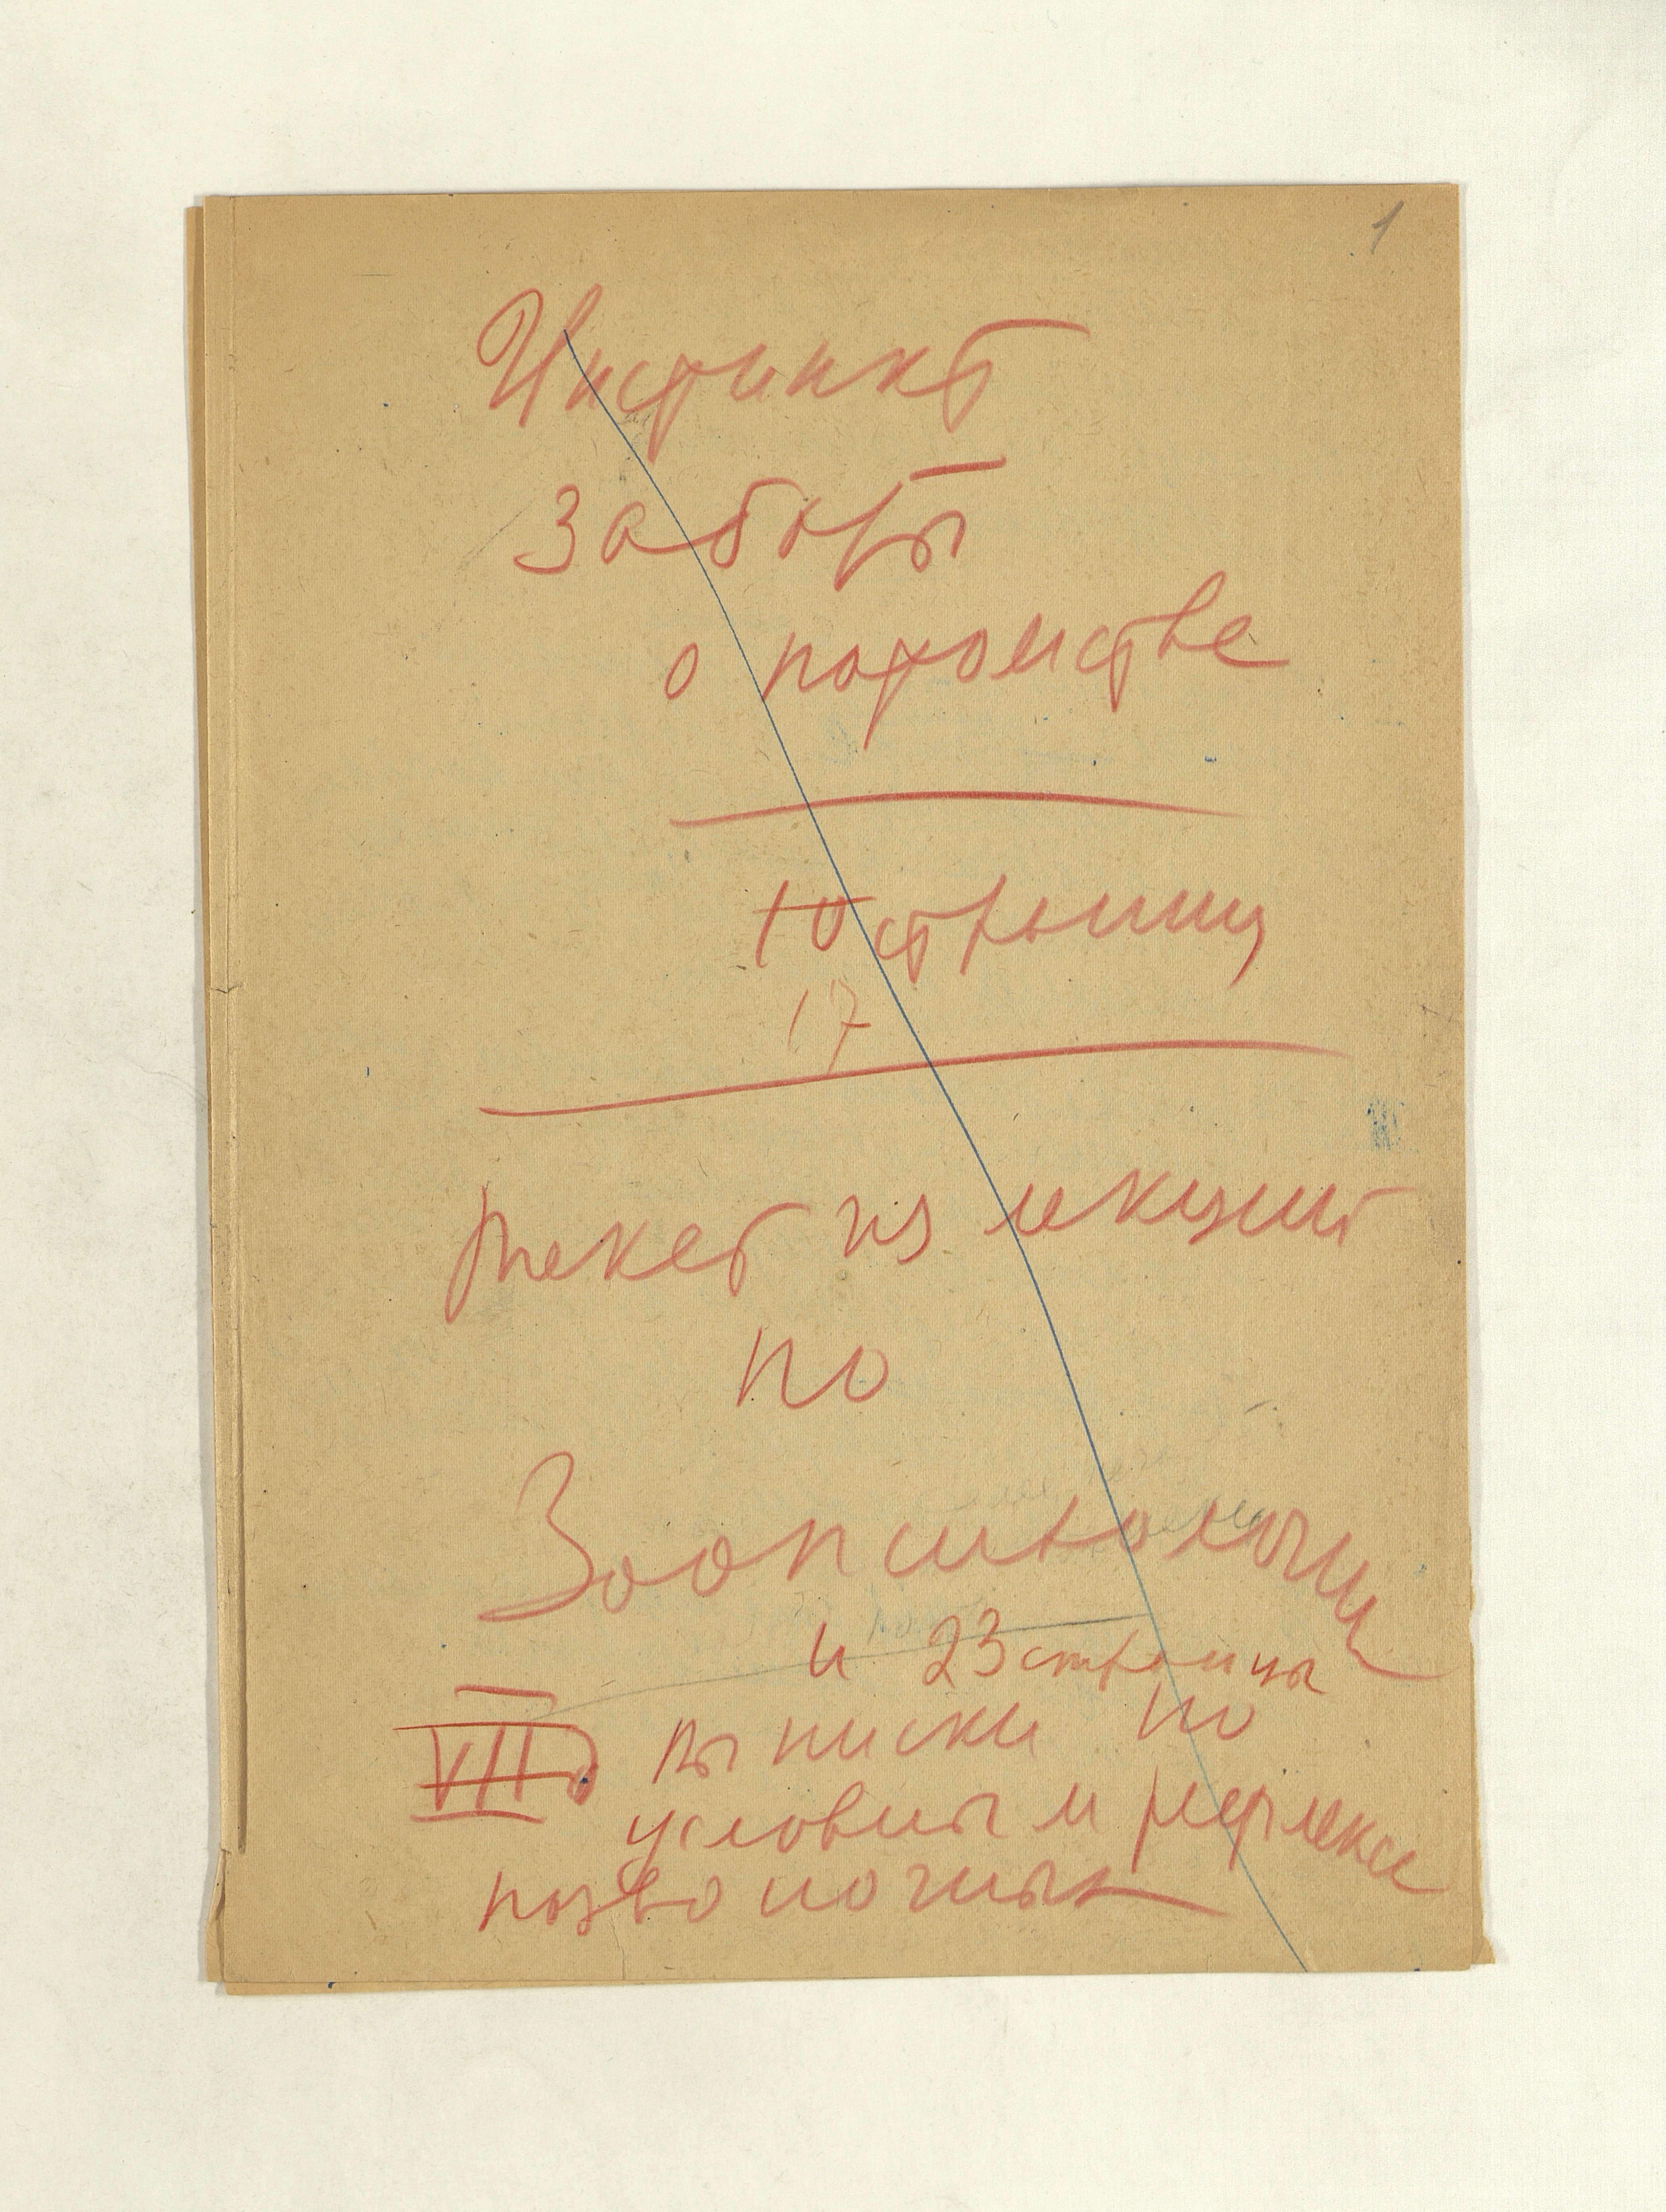 1
Инстинкт
заботы
о потомстве
10 страниц
17
Текст из лекций
по
Зоопсихологии
и 23 страницы
VII выписки по
условным рефлексам
позвоночных